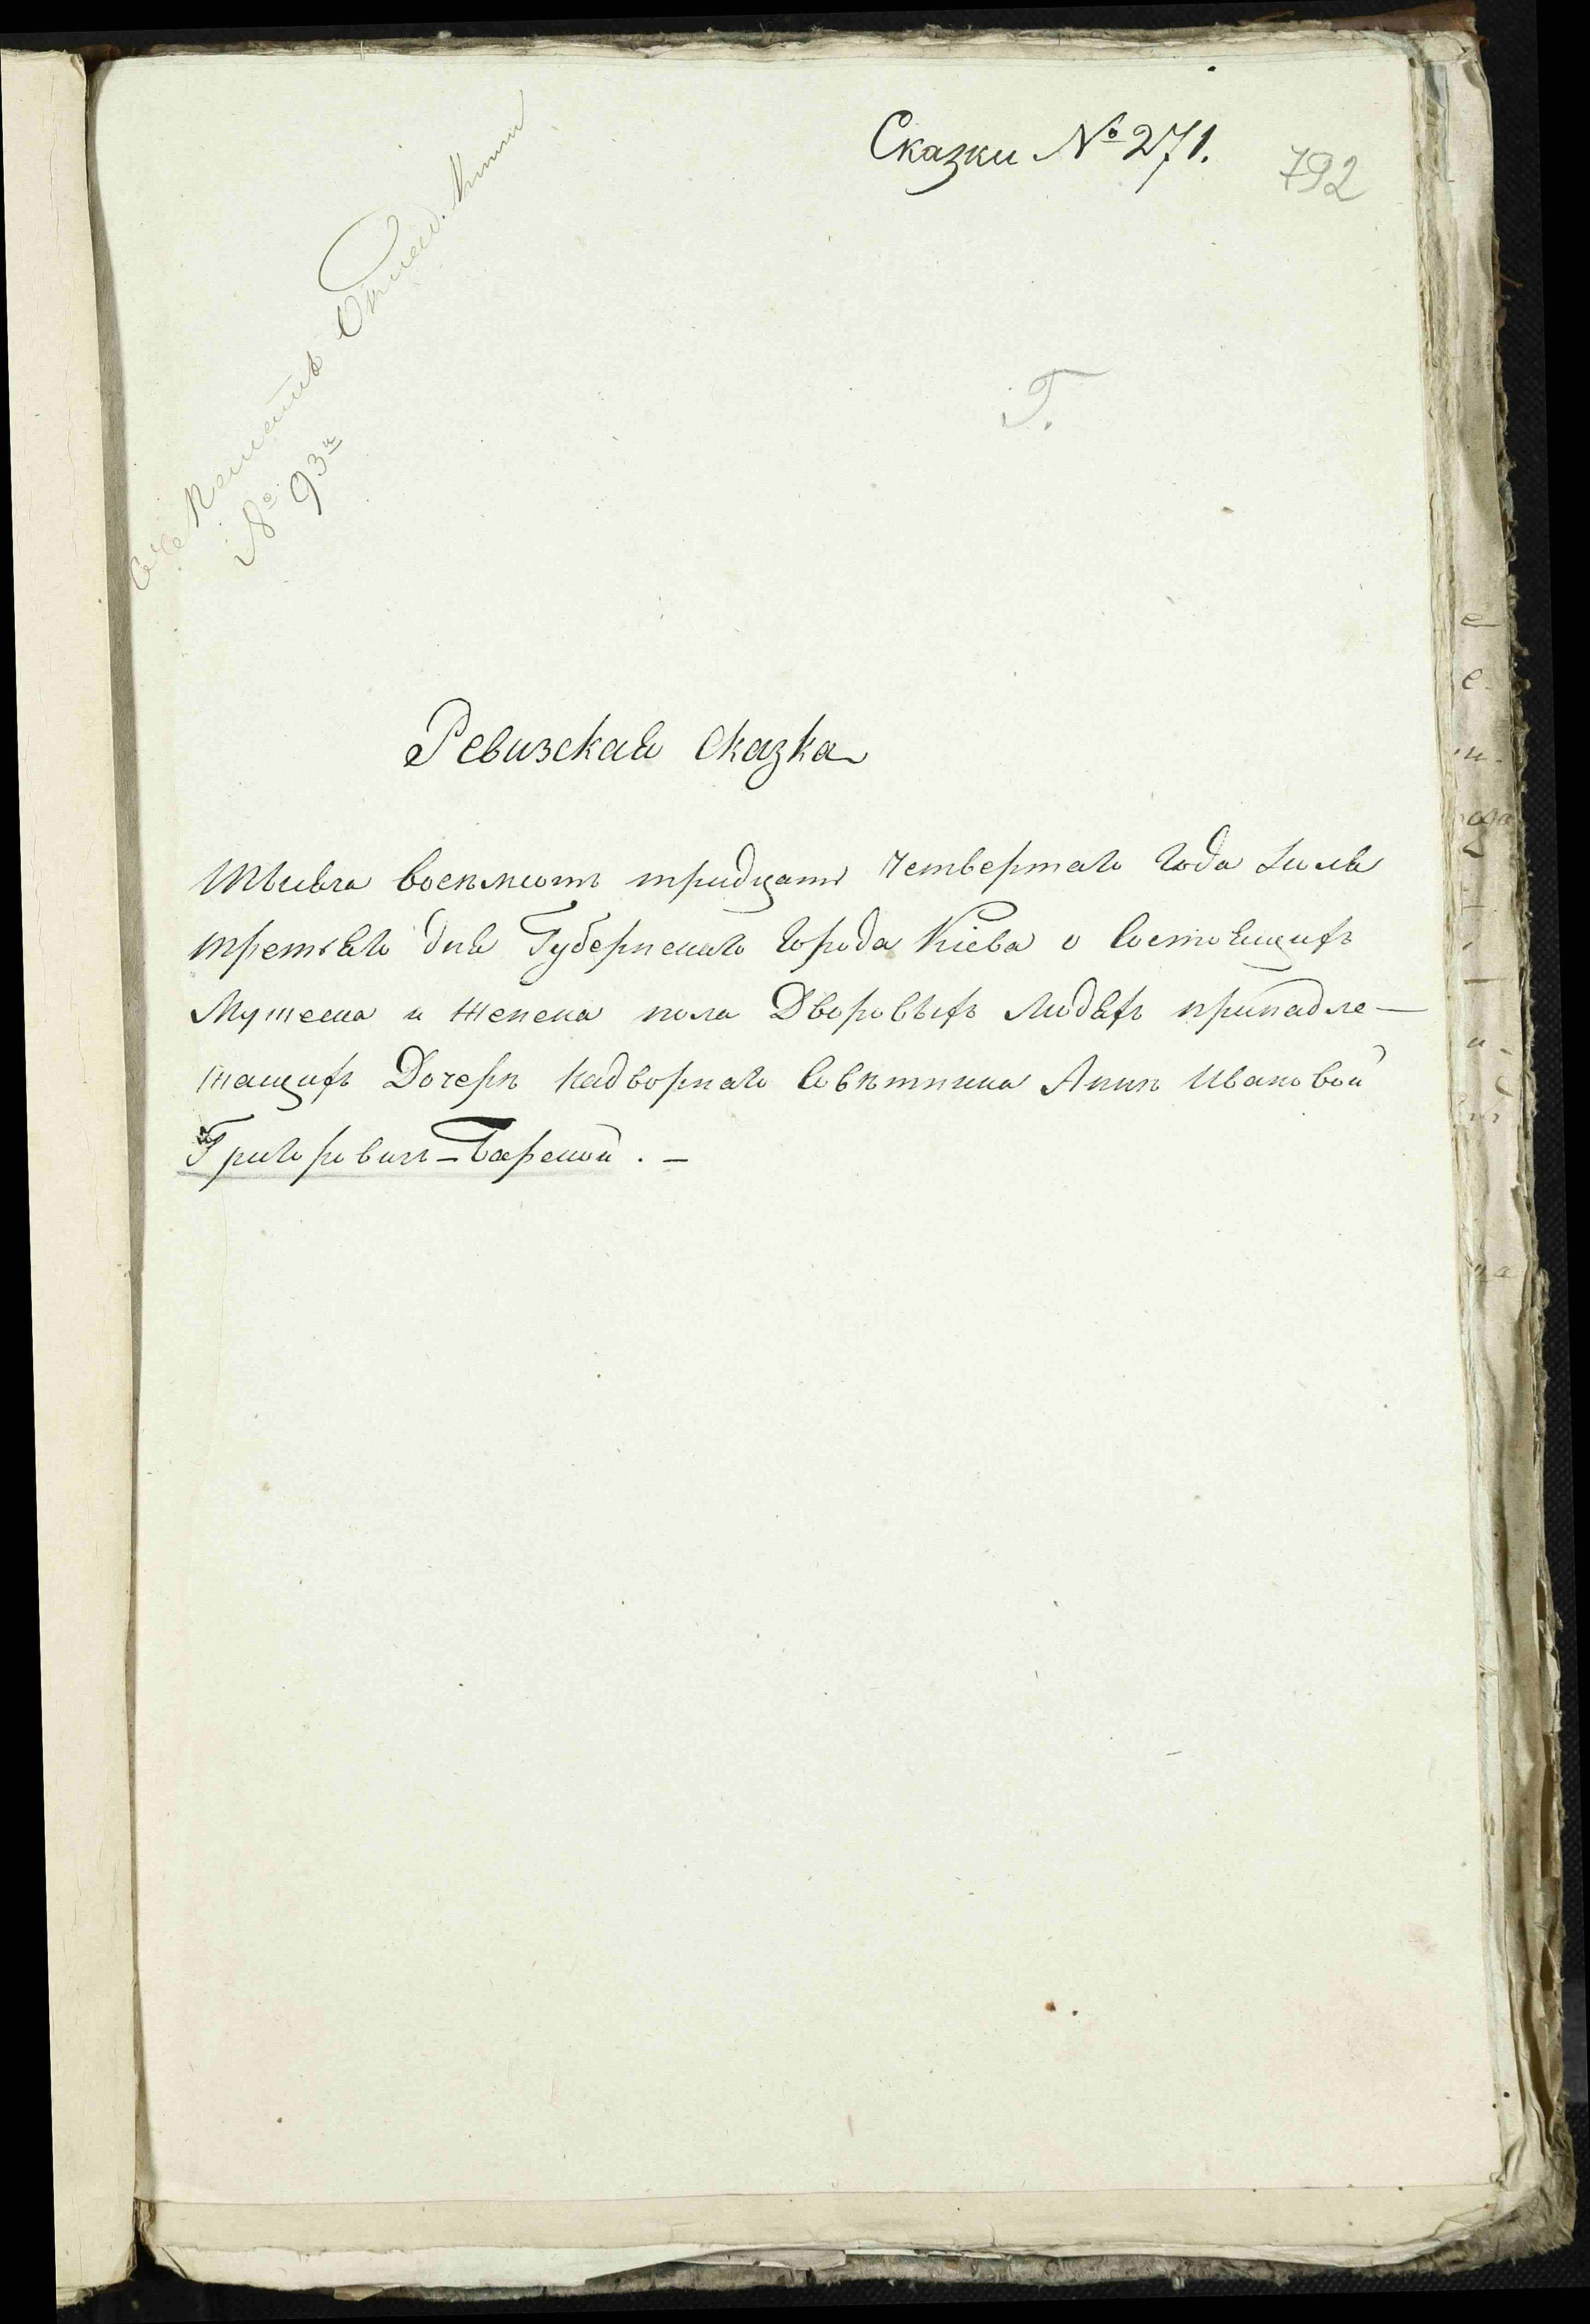 Сказки № 271.
792
№ 93й
Г.
Ревизская сказка
Тысяча восемьсотъ тридцать четвертаго года Іюля
третьяго дня Губернскаго города Кіева о состоящихъ
Мужеска и женска пола Дворовыхъ людяхъ принадле-
жащихъ Дочери Надворнаго Совѣтника Аннѣ Ивановой
Григоровичъ-Барской. -